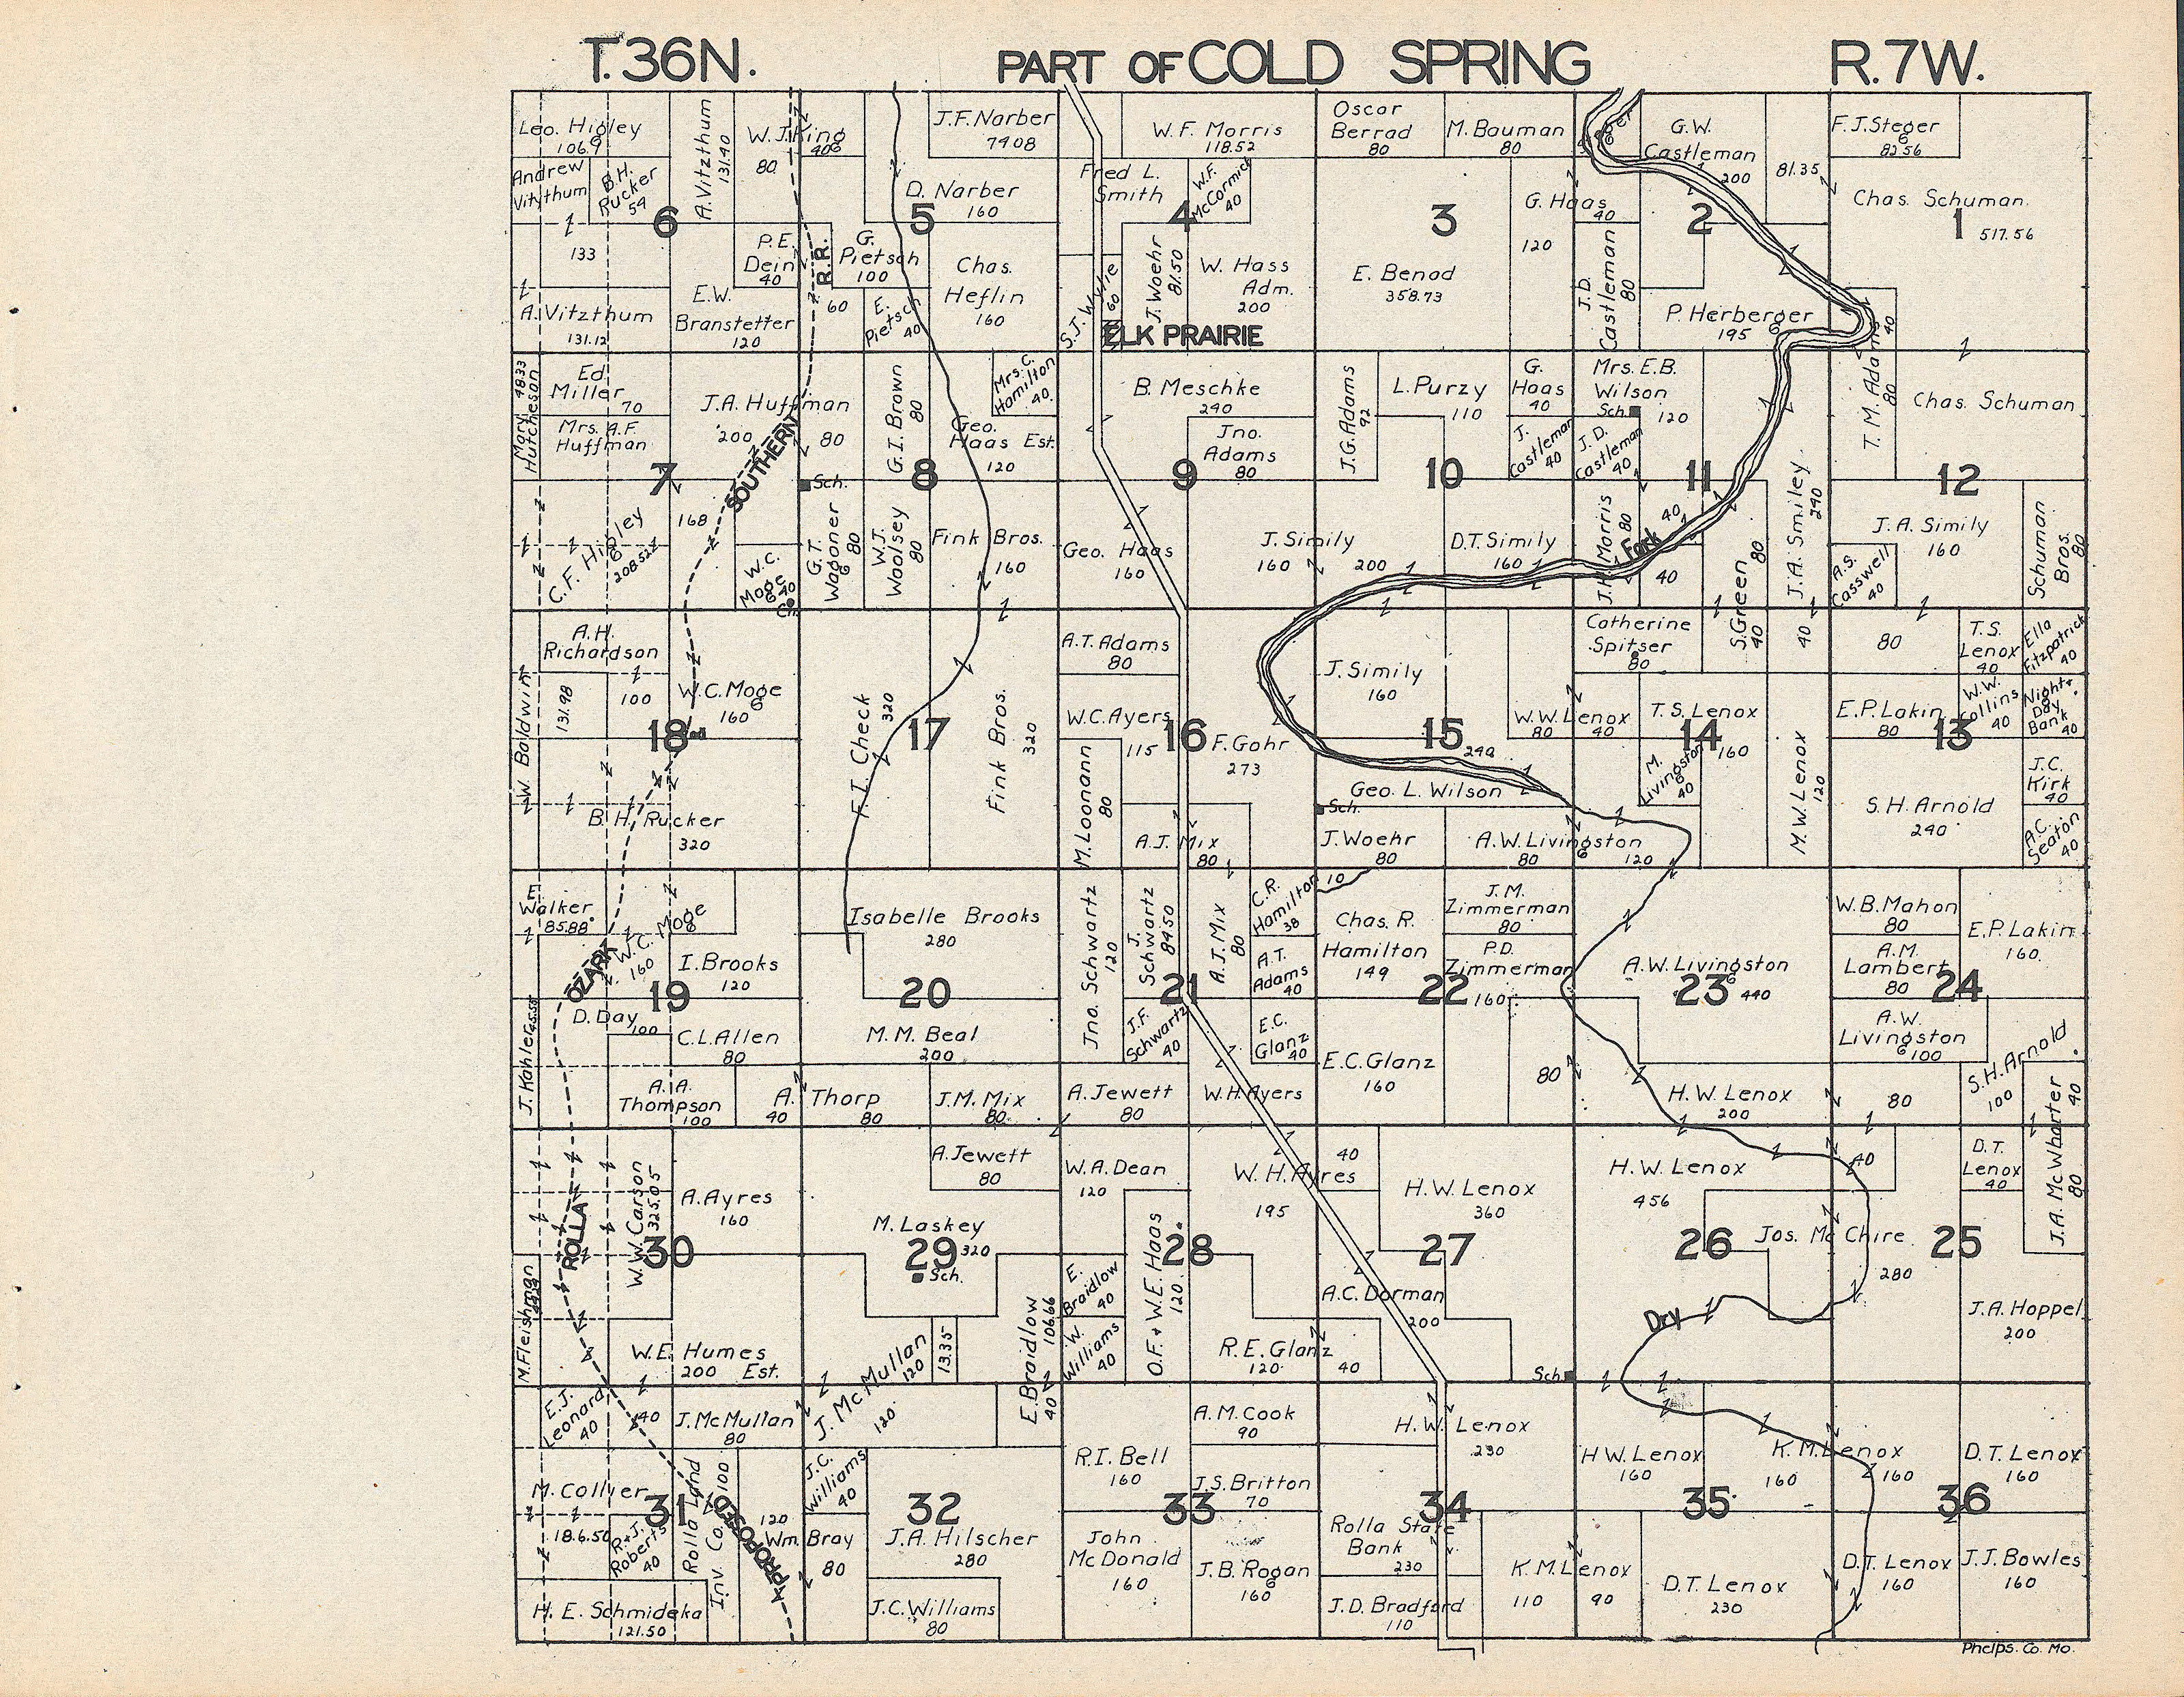 T.36N. PART OF COLD SPRING R.7W.
Leo. Higley
106.9
A. Vitzthum
131.40
W. J. King
40
80
J.F. Narber
79.08
W. F. Morris
118.52
Oscar
Berrad
80
M. Bauman
80
G.W.
Castleman
200
81.35
F.J. Steger
82.56
Andrew
Vitzthum
B.H.
Rucker
54
6
D. Narber
160
5
Fred L.
Smith
4
W.F.
McCormick
40
3
G. Haas
40
120
2
Chas. Schuman
1
517.56
133
P.E.
Dein
40
R.R.
G.
Pietsch
100
Chas.
Heflin
160
J. Woehr
81.50
W. Hass
Adm.
200
E. Benad
358.73
J.D.
Castleman
80
A. Vitzthum
131.12
E.W.
Branstetter
120
60
E.
Pietsch
40
S.J. Wylie
60
ELK PRAIRIE
P. Herberger
195
40
Mary Hutcheson
48.33
Ed
Miller
70
J.A. Huffman
200
80
G.I. Brown
80
Mrs. C.
Hamilton
40
B. Meschke
240
J.G. Adams
92
L. Purzy
110
G.
Haas
40
Mrs. E.B.
Wilson
Sch.
120
T. M. Adams
80
Chas. Schuman
Mrs. A.F.
Huffman
7
SOUTHERN
Sch.
8
Geo.
Haas Est.
120
9
Jno.
Adams
80
10
J.
Castleman
40
J. D.
Castleman
40
11
12
C.F. Higley
208.52
168
W.C.
Moge
40
Ch.
G.T.
Wagoner
80
W.J.
Woolsey
80
Fink Bros.
160
Geo. Haas
160
J. Simily
160
200
D.T. Simily
160
J.H. Morris
80
40
Fork
40
S. Green
80
40
J.A. Smiley
240
J. A. Simily
160
A.S.
Casswell
40
Schuman
Bros.
80
A.H.
Richardson
A.T. Adams
80
Catherine
Spitser
80
40
80
T.S.
Lenox
40
Ella
Fitzpatrick
40
W. Baldwin
131.98
100
W.C. Moge
160
18
F. I. Check
320
17
Fink Bros.
320
W.C. Ayers
115
16
F. Gohr
273
J. Simily
160
15
240
W.W. Lenox
80
40
T.S. Lenox
14
160
M.W. Lenox
120
E.P. Lakin
80
13
W.W.
Collins
40
Night &
Day
Bank
40
M. Loonann
80
M.
Livingston
40
J.C.
Kirk
40
B. H. Rucker
320
A.J. Mix
80
Geo. L. Wilson
Sch.
J. Woehr
80
A.W. Livingston
80
120
S. H. Arnold
240
A.C.
Seaton
40
E.
Walker
85.88
W.C. Moge
160
OZARK
I. Brooks
120
19
Isabelle Brooks
280
20
Jno. Schwartz
120
J.
Schwartz
84.50
A. J. Mix
80
21
C.R.
Hamilton
38
10
A.T.
Adams
40
Chas. R.
Hamilton
149
J. M.
Zimmerman
80
P.D.
Zimmerman
22
160
A.W. Livingston
23
440
W.B. Mahon
80
A.M.
Lambert
80
24
E.P. Lakin
160
J. Kahler
D. Day
100
C.L. Allen
80
M. M. Beal
200
J.F.
Schwartz
40
E.C.
Glanz
40
E.C. Glanz
160
80
A.W.
Livingston
100
S.H. Arnold
100
A. A.
Thompson
100
A. Thorp
40
80
J.M. Mix
80
A. Jewett
80
W. H. Ayers
H.W. Lenox
200
80
J.A. McWharter
40
80
W.W. Carson
325.05
A. Ayres
160
A. Jewett
80
W.A. Dean
120
W. H. Ayres
195
40
H.W. Lenox
360
H.W. Lenox
456
40
D.T.
Lenox
40
ROLLA
30
M. Laskey
29
320
Sch.
O.F. & W.E. Haas
120
28
27
26
Jos. McChire
280
25
M. Fleishman
E.
Braidlow
40
A.C. Dorman
200
Dry
J.A. Hoppel
200
W.E. Humes
200 Est.
J. McMullan
120
13.35
E. Braidlow
106.66
W.
Williams
40
R.E. Glanz
120
40
Sch.
E.J.
Leonard
40
40
J. McMullan
80
120
40
A.M. Cook
90
H.W. Lenox
230
M. Collyer
31
Rolla Land
Inv. Co. 100
PROPOSED
J.C.
Williams
40
32
R.I. Bell
160
J.S. Britton
70
33
34
H.W. Lenox
160
35
K.M. Lenox
160
160
D.T. Lenox
160
36
18.6.50
R. & J.
Roberts
40
120
Wm. Bray
80
J.A. Hilscher
280
John
McDonald
160
J.B. Rogan
160
Rolla State
Bank
230
K.M. Lenox
110
90
D.T. Lenox
230
D.T. Lenox
160
J.J. Bowles
160
H. E. Schmideka
121.50
J.C. Williams
80
J.D. Bradford
110
Phelps. Co. Mo.